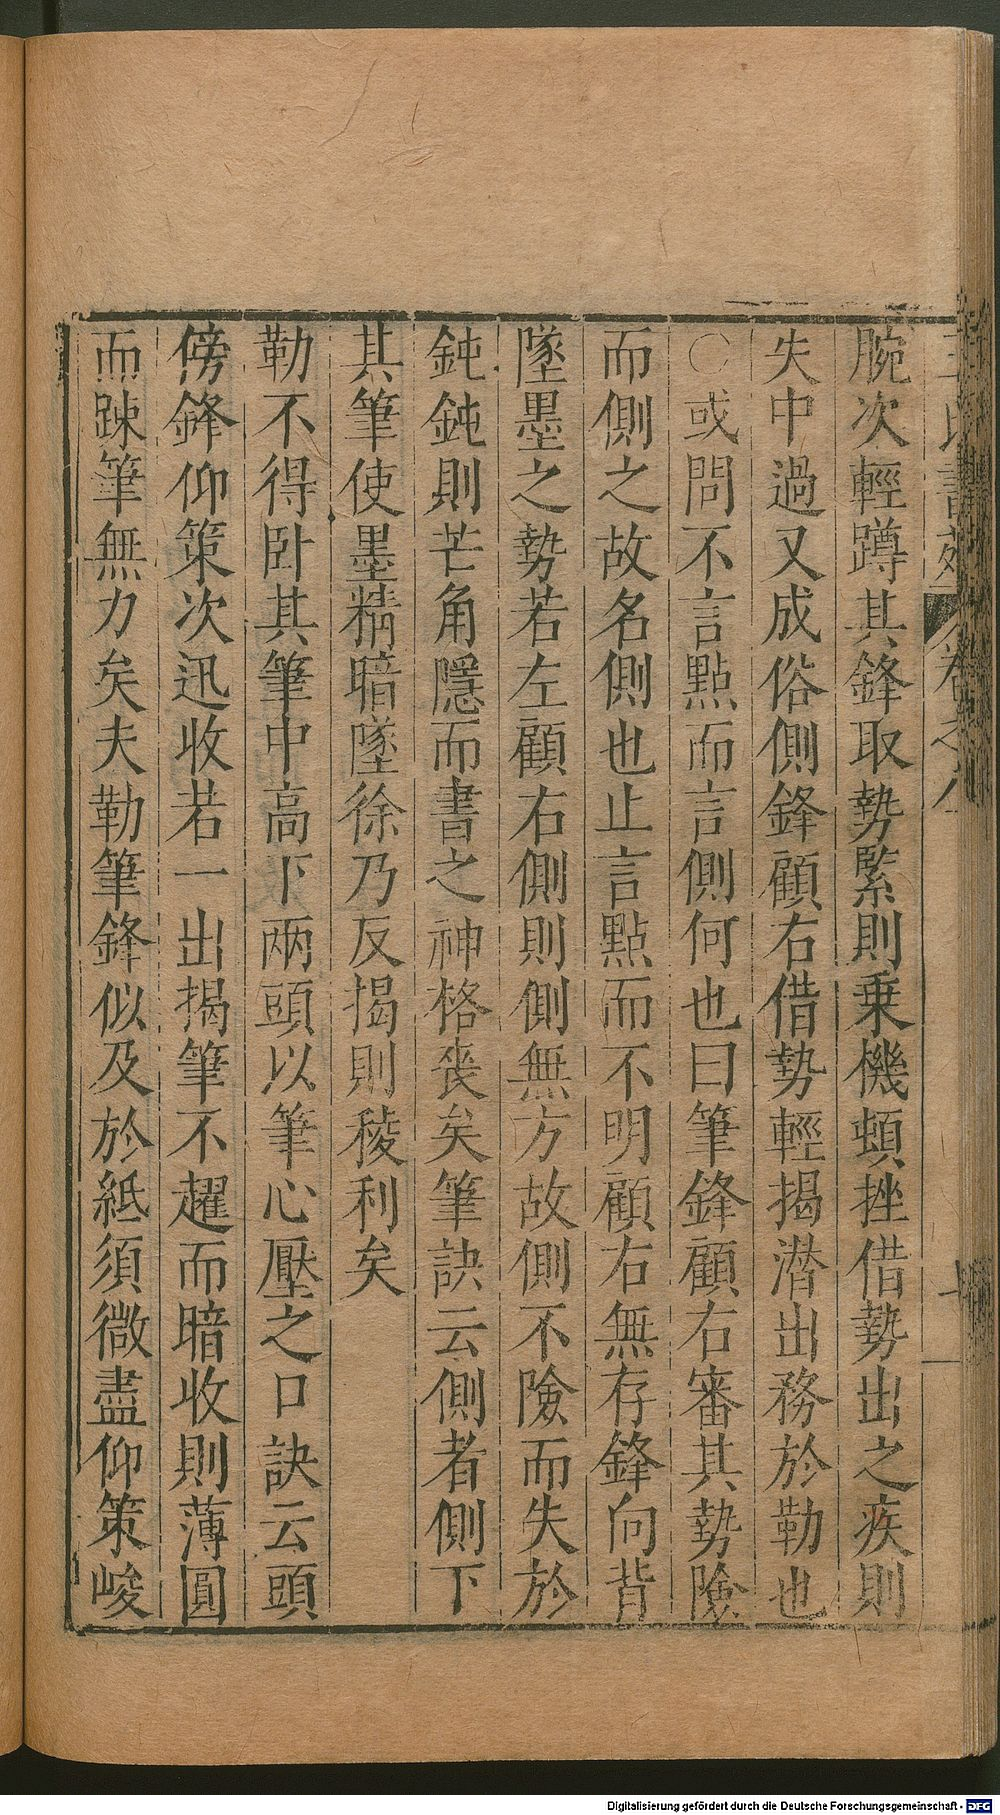 腕次輕蹲其鋒取勢緊則乗機頓挫借勢出之疾則
失中過又成俗側鋒顧右借勢輕揭潛出務於勒也
〇或問不言點而言側何也曰筆鋒顧右審其勢險
而側之故名側也止言點而不明顧右無存鋒向背
墜墨之勢若左顧右側則側無方故側不險而失於
鈍鈍則芒角隱而書之神格喪矣筆訣云側者側下
其筆使墨精暗墜徐乃反揭則稜利矣
勒不得卧其筆中高下兩頭以筆心壓之口訣云頭
傍鋒仰策次迅收若一出揭筆不趯而暗收則薄圓
而踈筆無力矣夫勒筆鋒似及於紙須微盡仰策峻
王氏書苑 卷之八
Digitalisierung gefördert durch die Deutsche Forschungsgemeinschaft - DFG